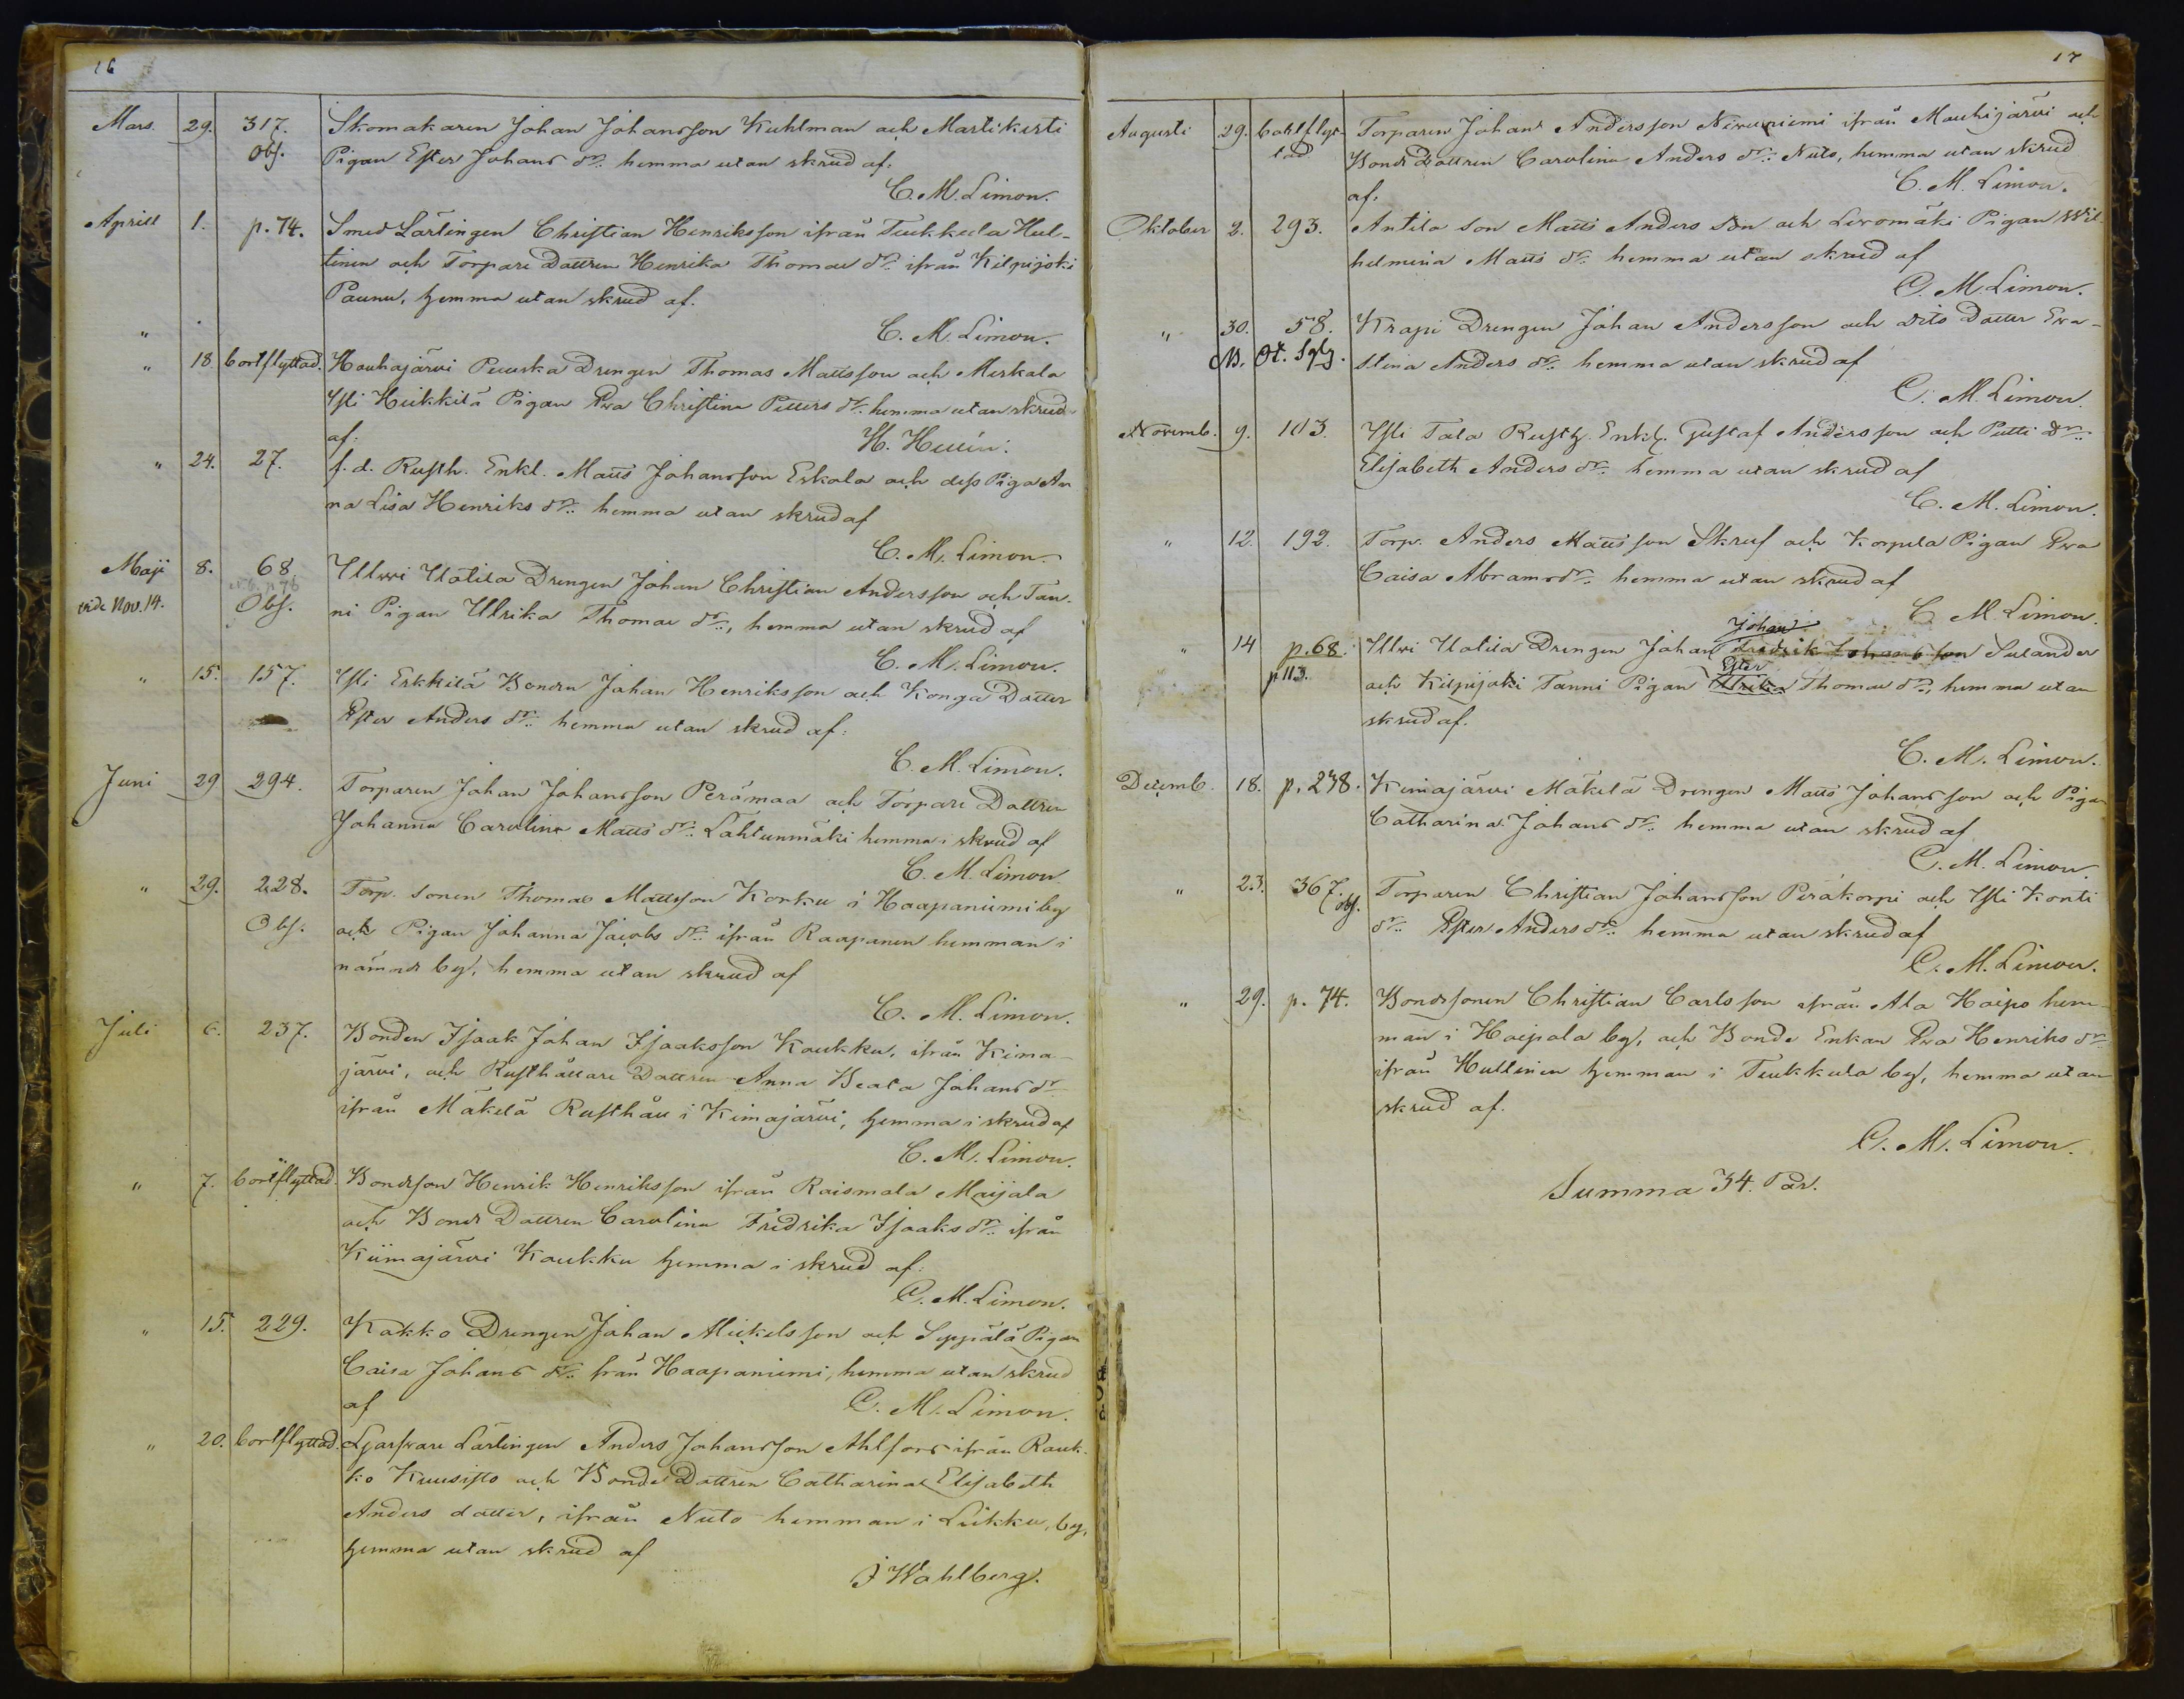 16
Mars. 29. 317. Skomakaren Johan Johansson Kuhlman och Martikisti
Obs. Pigan Ester Johans dr. hemma utan skrud af:
C. M. Limon.
Aprill 1. p. 74. Smed Lärlingen Christian Henriksson ifrån Teukkula Hul-
tinen och Torpare Dottren Henrika Thomae dr. ifrån Kilpijoki
Paunu, hemma utan skrud af.
" C. M. Limon.
" 18 bortflyttad. Houhajärvi Pewska Drengen Thomas Mattsson och Merkala
Ylli Heikkilä Pigan Eva Christina Petters dr. hemma utan skrud
af: H. Helén.
" 24. 27. f. d. Rusth. Enkl. Matts Johansson Eskola och dess Piga An
na Lisa Henriks dr. hemma utan skrud af
C. M. Limon.
Maji 8. 68 Illwi Uotila Drengen Johan Christian Andersson och Tan-
vide Nov. 14. Obs. ni Pigan Ulrika Thomae dr., hemma utan skrud af
C. M. Limon.
" 15. 157. Ylli Erkkilä Bonden Johan Henriksson och Konga Dotter
Ester Anders dr. hemma utan skrud af:
C. M. Limon.
Juni 29 294. Torparen Johan Johansson Perämaa och Torpare Dottren
Johanna Carolina Matts dr. Lahtunmäki hemma i skrud af
C. M. Limon
" 29. 228. Torp. sonen Thomas Mattsson Korku i Haapaniemi by
Obs. och Pigan Johanna Jacobs dr. ifrån Raapanen hemman i
nämnde by, hemma utan skrud af
C. M. Limon.
Juli 6. 237. Bonden Isaak Johan Isaaksson Kaukku, ifrån Kima-
järvi, och Rusthållare Dottren Anna Beata Johans dr
ifrån Mäkelä Rusthåll i Kimajärvi, hemma i skrud af
C. M. Limon.
" 7. bortflyttad. Bondson Henrik Henriksson ifrån Raismala Maijala
och Bonde Dottren Carolina Fredrika Isaaks dr. ifrån
Kiimajärvi Kaukku hemma i skrud af.
C. M. Limon.
" 15. 229. Kakko Drengen Johan Mickelsson och Seppälä Pigan
Caisa Johans dr. från Haapaniemi, hemma utan skrud
af C. M. Limon.
" 20. bortflyttad. Garfvare Lärlingen Anders Johansson Ahlfors ifrån Rauk-
ko Kuusisto och Bonde Dottren Catharina Elisabeth
Anders dotter, ifrån Nuto hemman i Liekku, by,
hemma utan skrud af
J Wahlberg.
17
Augusti 29. bortflyt- Torparen Johan Andersson Niemeniemi ifrån Mouhijärvi och
tad Bonde dottren Carolina Anders dr. Nuto, hemma utan skrud
af. C. M. Limon.
Oktober 2. 293. Antila son Matts Anders son och Livomäki Pigan Wil
helmina Matts dr. hemma utan skrud af
C. M. Limon.
" 30. 58. Krapi Drengen Johan Andersson och dito Dotter Eva-
stina Anders dr. hemma utan skrud af
C. M. Limon.
Novemb. 9. 103. Ylli Tala Rusth. Enkl. Gustaf Andersson och Putti dr.
Elisabeth Anders dr. hemma utan skrud af
C. M. Limon.
" 12. 192. Torp. Anders Mattsson Skruf och Korpela Pigan Eva
Caisa Abrams dr. hemma utan skrud af
C. M. Limon.
Johan
" 14 p. 68. Illwi Uotila Drengen Johan Fredrik Johansson Sulander
Ester
p 113. och Kilpijoki Tanni Pigan Ulrika Thomae dr., hemma utan
skrud af.
C. M. Limon.
Decemb. 18. p. 238. Kimajärvi Mäkelä Drengen Matts Johansson och Pigan
Catharina Johans dr. hemma utan skrud af
C. M. Limon.
" 23. 367. obs. Torparen Christian Johansson Peräkorpi och Ylli Konti
dr. Ester Anders dr. hemma utan skrud af
C. M. Limon.
" 29. p. 74. Bondsonen Christian Carlsson ifrån Ala Haipo hem-
man i Haipala by, och Bonde Enkan Eva Henriks dr.
ifrån Hultinen hemman i Teukkula by, hemma utan
skrud af.
C. M. Limon.
Summa 34. Par.